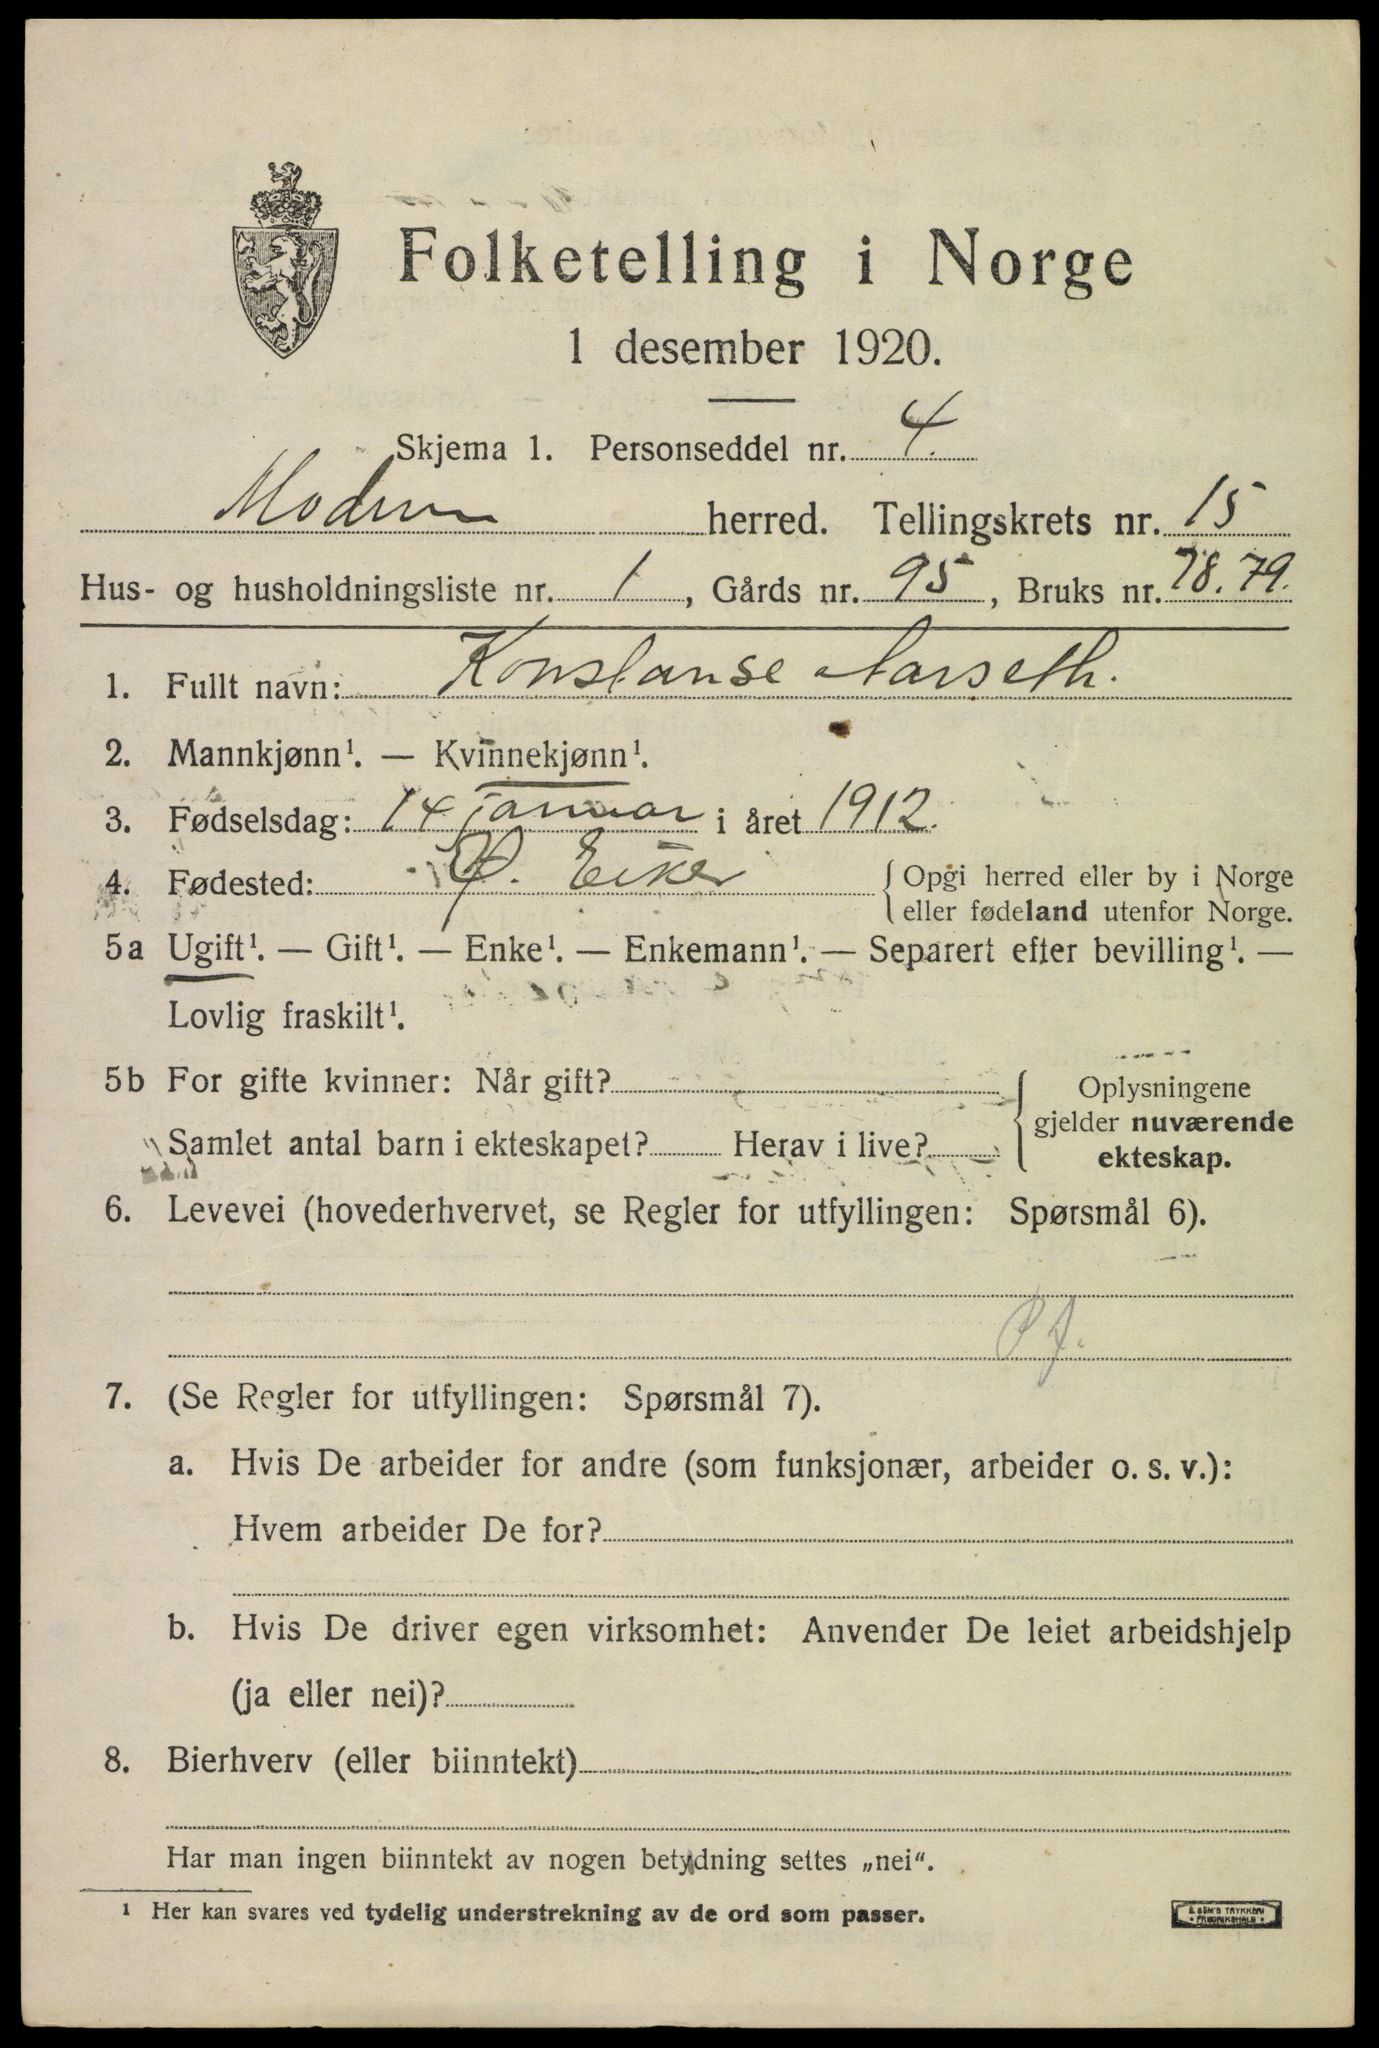 Folketelling i Norge
1 desember 1920.
Skjema 1. Personseddel nr. 4.
Modum herred. Tellingskrets nr. 15
Hus- og husholdningsliste nr. 1, Gårds nr. 95, Bruks nr. 78.79.
1. Fullt navn: Konstanse Aarseth.
2. Mannkjønn¹. — Kvinnekjønn¹.
3. Fødselsdag: 14 januar i året 1912.
4. Fødested: Ø. Eiker { Opgi herred eller by i Norge
eller fødeland utenfor Norge.
5a Ugift¹. — Gift¹. — Enke¹. — Enkemann¹. — Separert efter bevilling¹. —
Lovlig fraskilt¹.
5b For gifte kvinner: Når gift? { Oplysningene
gjelder nuværende
Samlet antal barn i ekteskapet? Herav i live? ekteskap.
6. Levevei (hovederhvervet, se Regler for utfyllingen: Spørsmål 6).
7. (Se Regler for utfyllingen: Spørsmål 7).
a. Hvis De arbeider for andre (som funksjonær, arbeider o. s. v.):
Hvem arbeider De for?
b. Hvis De driver egen virksomhet: Anvender De leiet arbeidshjelp
(ja eller nei)?
8. Bierhverv (eller biinntekt)
Har man ingen biinntekt av nogen betydning settes „nei“.
¹ Her kan svares ved tydelig understrekning av de ord som passer.